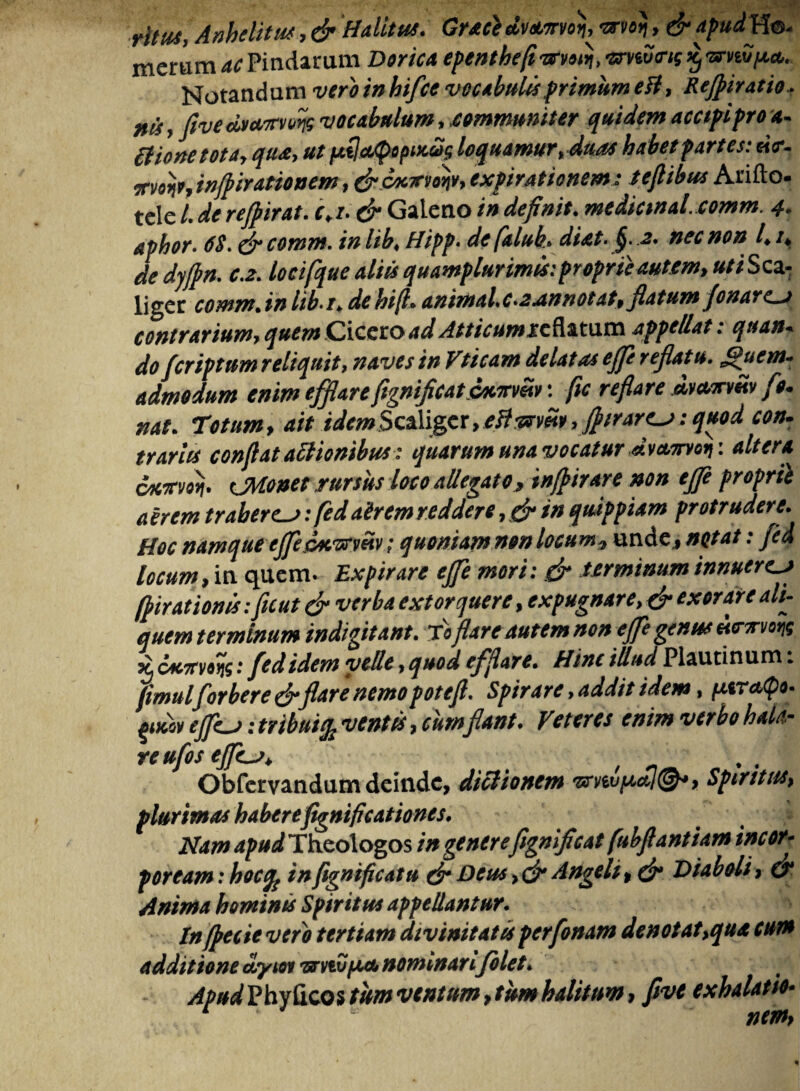 ritus, Anhelitus, & Halitus. Græcè ἀναπνοὴ, πνοὴ, & apud Ho-
merum ac Pindarum Dorica epenthesi πνοιὴ, πνεῦσις ϗ πνεῦμα.
Notandum verò in hisce vocabulis primùm est, Respiratio-
nis, sive ἀναπνοῆς vocabulum, communiter quidem accipi pro a-
ctione tota, quæ, ut μεταφορικῶς loquamur, duas habet partes: εἰσ-
πνοὴν, inspirationem, & ἐκπνοὴν, expirationem: testibus Aristo-
tele l. de respirat. c. 1. & Galeno in definit. medicinal. comm. 4.
aphor. 68. & comm. in lib. Hipp. de salub. diæt. §. 2. nec non l. 1.
de dyspn. c. 2. locisque aliis quamplurimis: propriè autem, uti Sca-
liger comm. in lib. 1. de hist. animal. c. 2 annotat, flatum sonare
contrarium, quem Cicero ad Atticum reflatum appellat: quan-
do scriptum reliquit, naves in Uticam delatas esse reflatu. Quem-
admodum enim efflare significat ἐκπνεῖν: sic reflare ἀναπνεῖν so-
nat. Totum, ait idem Scaliger, est πνεῖν, spirare: quod con-
trariis constat actionibus: quarum una vocatur ἀναπνοὴ: altera
ἐκπνοὴ. Monet rursùs loco allegato, inspirare non esse propriè
aërem trahere: sed aërem reddere, & in quippiam protrudere.
Hoc namque esse ἐκπνεῖν; quoniam non locum, unde, notat: sed
locum, in quem. Expirare esse mori: & terminum innuere
spirationis: sicut & verba extorquere, expugnare, & exorare ali-
quem terminum indigitant. To flare autem non esse genus εἰσπνοῆς
ϗ ἐκπνοῆς: sed idem velle, quod efflare. Hinc illud Plautinum:
simul sorbere & flare nemo potest. Spirare, addit idem, μεταφο-
ρικὸν esse: tribuiq; ventis, cùm flant. Veteres enim verbo hala-
re usos esse.
Observandum deinde, dictionem πνεύματος, Spiritus,
plurimas habere significationes.
Nam apud Theologos in genere significat substantiam incor-
poream: hocq; in significatu & Deus, & Angeli, & Diaboli, &
Anima hominis Spiritus appellantur.
In specie verò tertiam divinitatis personam denotat, quæ cum
additione ἅγιον πνεῦμα nominari solet.
Apud Physicos tùm ventum, tùm halitum, sive exhalatio-
nem,